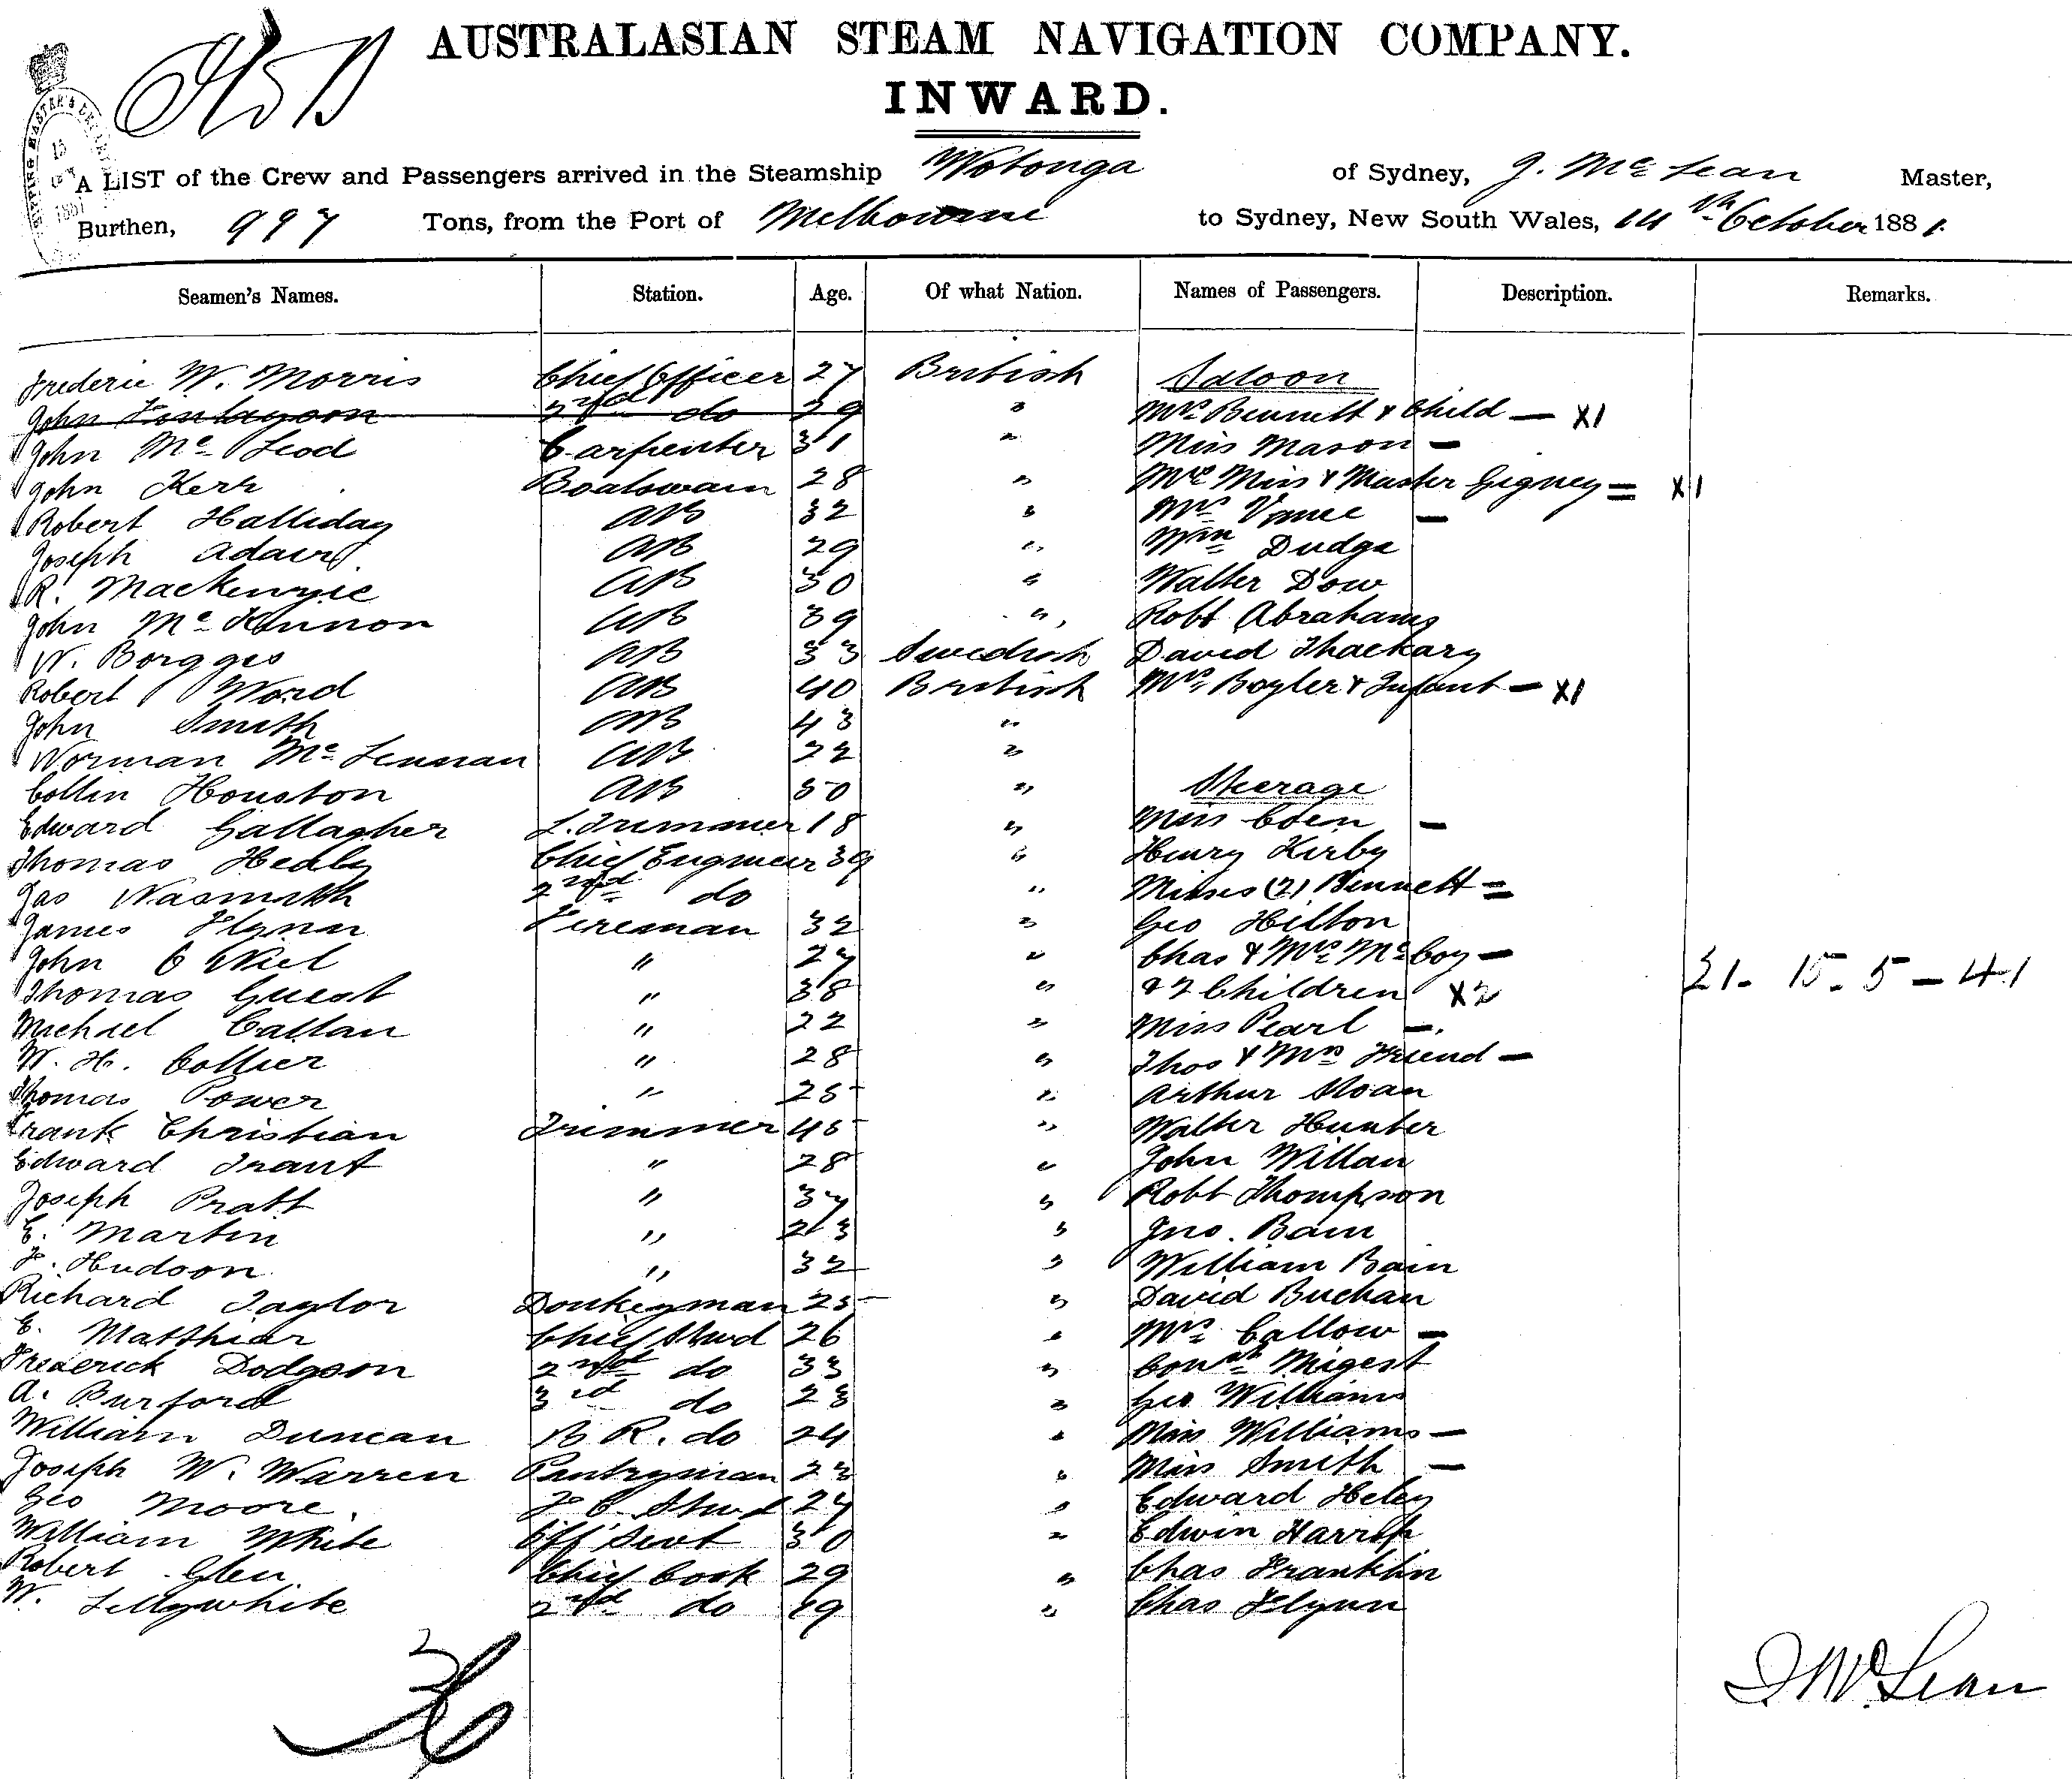 AUSTRALASIAN STEAM NAVIGATION COMPANY.
INWARD.
A LIST of the Crew and Passengers arrived in the Steamship Wotonga of Sydney, J. McLean Master,
Burthen, 997 Tons, from the Port of Melbourne to Sydney, New South Wales, 14th October 1881.
Seamen's Names. Station. Age. Of what Nation. Names of Passengers. Description. Remarks.
Frederic W. Morris Chief Officer 27 British Saloon
John Finlayson 2nd do 29 " Mrs Bennett & Child — X1
John McLeod Carpenter 31 " Miss Mason —
John Kerr Boatswain 28 " Mrs Miss & Master Gigney = X1
Robert Halliday AB 32 " Mrs Vance —
Joseph Adair AB 29 " Wm Dudge
R. Mackenzie AB 30 " Walter Dow
John McKinnon AB 39 " Robt Abrahams
W. Borgges AB 33 Swedish David Thackary
Robert Word AB 40 British Mrs Boyler & Infant — X1
John Smith AB 43 "
Norman McLennan AB 22 "
Collin Houston AB 50 " Steerage
Edward Gallagher L. Trimmer 18 " Miss Coen —
Thomas Healy Chief Engineer 39 " Henry Kirby
Jas Wasmith 2nd do " Misses (2) Bennett =
James Flynn Fireman 32 " Geo Hilton
John O Niel " 27 " Chas & Mrs McCoy —
Thomas Guest " 38 " & 2 Children X2 21. 15. 5 — 41
Michael Callan " 22 " Miss Pearl —.
W. H. Collier " 28 " Thos & Mrs Friend —
Thomas Power " 25 " Arthur Sloan
Frank Christian Trimmer 45 " Walter Hunter
Edward Trant " 28 " John Willan
Joseph Pratt " 37 " Robt Thompson
E. Martin " 23 " Jno. Bain
F. Hudson " 32 " William Bain
Richard Taylor Donkeyman 25 " David Buchan
E. Matthias Chief Stwd 26 " Mrs Callow —
Frederick Dodgson 2nd do 33 " Migest
A. Burford 3rd do 23 " Geo Williams
William Duncan B. R. do 24 " Miss Williams —
Joseph W. Warren Pantryman 23 " Miss Smith —
Geo Moore F. C. Stwd 27 " Edward Heley
William White Off Sevt 30 " Edwin Harris
Robert Glen Chief Cook 29 " Chas Franklin
W. Lillywhite 2nd do 19 " Chas Flynn
J McLean